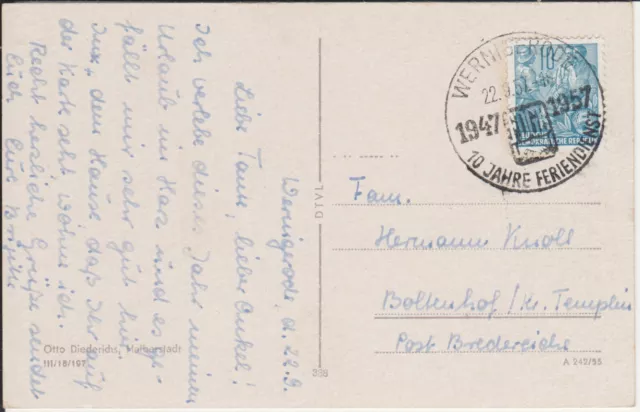 Wernigerode, d. 22.9.
Liebe Tante, lieber Onkel!
Ich verlebe dieses Jahr meinen
Urlaub im Harz und es ge-
fällt mir sehr gut hier.
Inx, dem Hause, daß Ihr auf
der Karte seht, wohne ich.
Recht herzliche Grüße sendet
Euch Eure Brigitte
Otto Diederichs, Halberstadt
III/18/197
338
DTVL
WERNIGERODE
22.9.57
1947 1957
10 JAHRE FERIENDIENST
10
DEMOKRATISCHE REPUBLIK
Fam.
Hermann Knoll
Boltenhof / Kr. Templin
Post Bredereiche
A 242/55